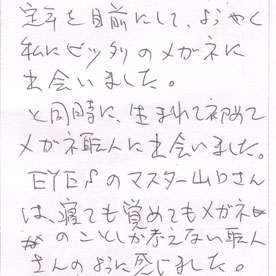 定年を目前にして、ようやく
私にピッタリのメガネに
出会いました。
と同時に、生まれて初めて
メガネ職人に出会いました。
EYE♪のマスター山口さん
は、寝ても覚めてもメガネ
のことしか考えない職人
さんのように感じました。